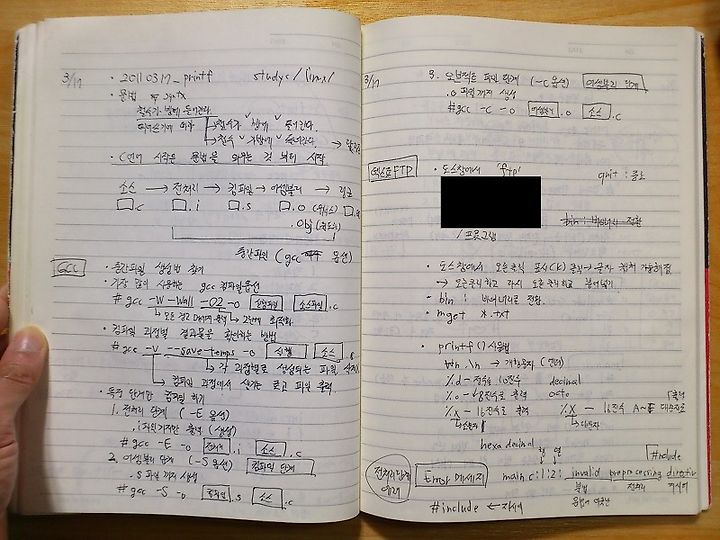 3/17 · 20110317_printf studyc/linux/
· 문법
철수가 방에 들어간다.
띄어쓰기에 따라 철수가 ˅ 방에 ˅ 들어간다.
철수 ˅ 가방에 ˅ 들어간다.
· C언어 시작은 문법을 외우는 것 부터 시작
소스 → 전처리 → 컴파일 → 어셈블리 → 링크
□.c □.i □.s □.o (리눅스)
.obj (윈도우)
중간파일 (gcc 옵션)
GCC · 중간파일 생성법 찾기
· 가장 많이 사용하는 gcc 컴파일옵션
# gcc -W -Wall -O2 -o 실행파일 소스파일.c
모든 경고메세지 출력 2단계 최적화
· 컴파일 과정별 결과물을 확인하는 방법
# gcc -v --save-temps -o 실행 소스.c
각 과정별로 생성되는 파일
컴파일 과정에서 생기는 로그 파일 출력
· 특정 단계만 컴파일 하기
1. 전처리 단계 (-E 옵션)
.i 파일까지만 출력 (생성)
# gcc -E -o 전처리.i 소스.c
2. 어셈블리 단계 (-S 옵션) 컴파일 단계
.s 파일 까지 생성
# gcc -S -o 컴파일.s 소스.c
3/17 3. 오브젝트 파일 단계 (-c 옵션) 어셈블리 단계
.o 파일 까지 생성
# gcc -c -o 어셈블리.o 소스.c
FTP · 도스창에서 'ftp' quit : 종료
bin : 바이너리 전환
/프로그램
· 도스창에서 오른클릭 표시(K) 클릭 → 글자 컬러 가능해짐
→ 오른클릭하고 다시 오른클릭하고 붙여넣기
· bin : 바이너리로 전환
· mget *.txt
· printf() 사용법
\n 개행문자 (엔터)
%d - 정수를 10진수 decimal
%o - 8진수로 출력 octo
%x - 16진수로 출력 %X - 16진수 A~F 대문자로 출력
소문자 대문자
hexa decimal
행 열 #include
전처리단계 에러 Error 메세지 main.c:1:2: invalid preprocessing directive
불법 전처리 지시어
문법에 어긋난
#include ← 자세